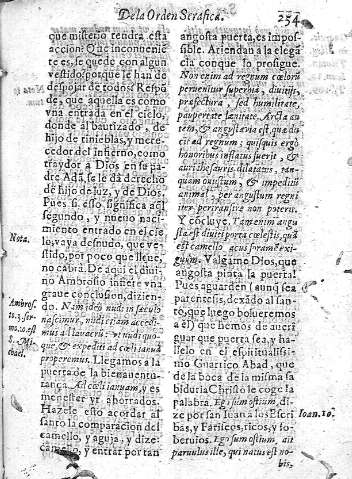 De la Orden Serafica. 254
que misterio tendrà esta
accion? Que inconuenie
te es, se quede con algun
vestido, porque le han de
despojar de todos? Respõ
de, que aquella es como
vna entrada en el cielo,
donde al bautizado, de
hijo de tinieblas, y mere
cedor del infierno, como
traydor a Dios en su pa
dre Adã, se le dà derecho
de hijo de luz, y de Dios.
Pues si esso significa aql
segundo, y nueuo naci
miento entrado en el cie
Nota.
lo, vaya desnudo, que ve-
stido, por poco que lleue,
no cabrà. De aqui el diui
no Ambrosio infiere vna
graue conclusion, dizien-
Ambros.
to. 3. ser
mo. 10. est
S. Mi-
chael.
do. Nam ideò nudi in sæculo
nascimur, nudi etiam accedi
mus ad lauacrũ: vt nudi quo-
que, & expediti ad cœli ianuã
properemus. Llegamos a la
puerta de la bienauentu-
rança, Ad cœli ianuam, y es
menester yr ahorrados.
Hazele esto acordar al
santo la comparacion del
camello, y aguja, y dize:
camello, y entrar por tan
angosta puerta, es impos-
sible. Atiendan a la elegã
cia con que lo prosigue.
Non enim ad regnum cœlorũ
peruenitur superbia, diuitijs,
præfectura, sed humilitate,
paupertate lenitate. Arcta au
tem, & angusta via est, quæ du
cit ad regnum; quisquis ergò
honoribus inflatus fuerit, &
auri thesauris dilatatus, tan-
quam onustum, & impeditũ
animal, per angustum regni
iter perirasire non poterit.
Y concluye. Tam enim angu
sta est diuiti porta cœlestis, quã
est camello acus foramẽ exi-
guum. Valgame Dios, que
angosta pinta la puerta!
Pues aguarden (aunq sea
parentesis, dexado al san-
to, que luego bolueremos
a èl) que hemos de aueri
guar que puerta sea, y ha-
llelo en el espiritualissi-
mo Guarrico Abad, que
de la boca de la misma sa
biduria Christo le coge la
palabra. Ego sum ostium, di
Ioan. 10.
ze por san Iuan a los Escri
bas, y Fariseos, ricos, y so-
beruios. Ego sum ostium, ait
paruulus ille, qui natus est no
bis,